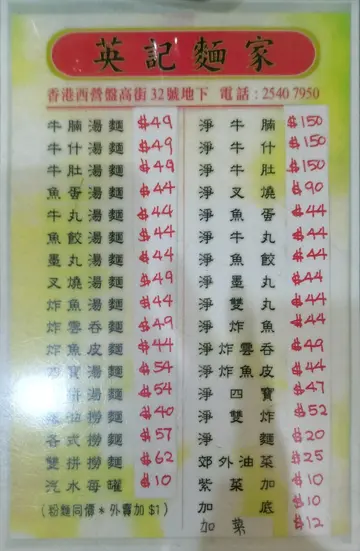 英記麵家
香港西營盤高街32號地下 電話:2540 7950
牛腩湯麵 $49
牛什湯麵 $49
牛肚湯麵 $49
魚蛋湯麵 $44
牛丸湯麵 $44
魚餃湯麵 $44
墨丸湯麵 $44
叉燒湯麵 $49
炸魚湯麵 $44
炸雲吞麵 $49
炸魚皮麵 $44
四寶湯麵 $54
湯麵 $54
撈麵 $40
各式撈麵 $57
雙拼撈麵 $62
汽水每罐 $10
(粉麵同價*外賣加$1)
淨牛腩 $150
淨牛什 $150
淨牛肚 $150
淨叉燒 $90
淨魚蛋 $44
淨牛丸 $44
淨魚餃 $44
淨墨丸 $44
淨雙丸 $44
淨炸魚 $44
淨炸雲吞 $49
淨炸魚皮 $44
淨四寶 $47
淨雙炸 $52
淨麵 $20
郊外油菜 $25
紫菜 $10
加底 $10
加菜 $12